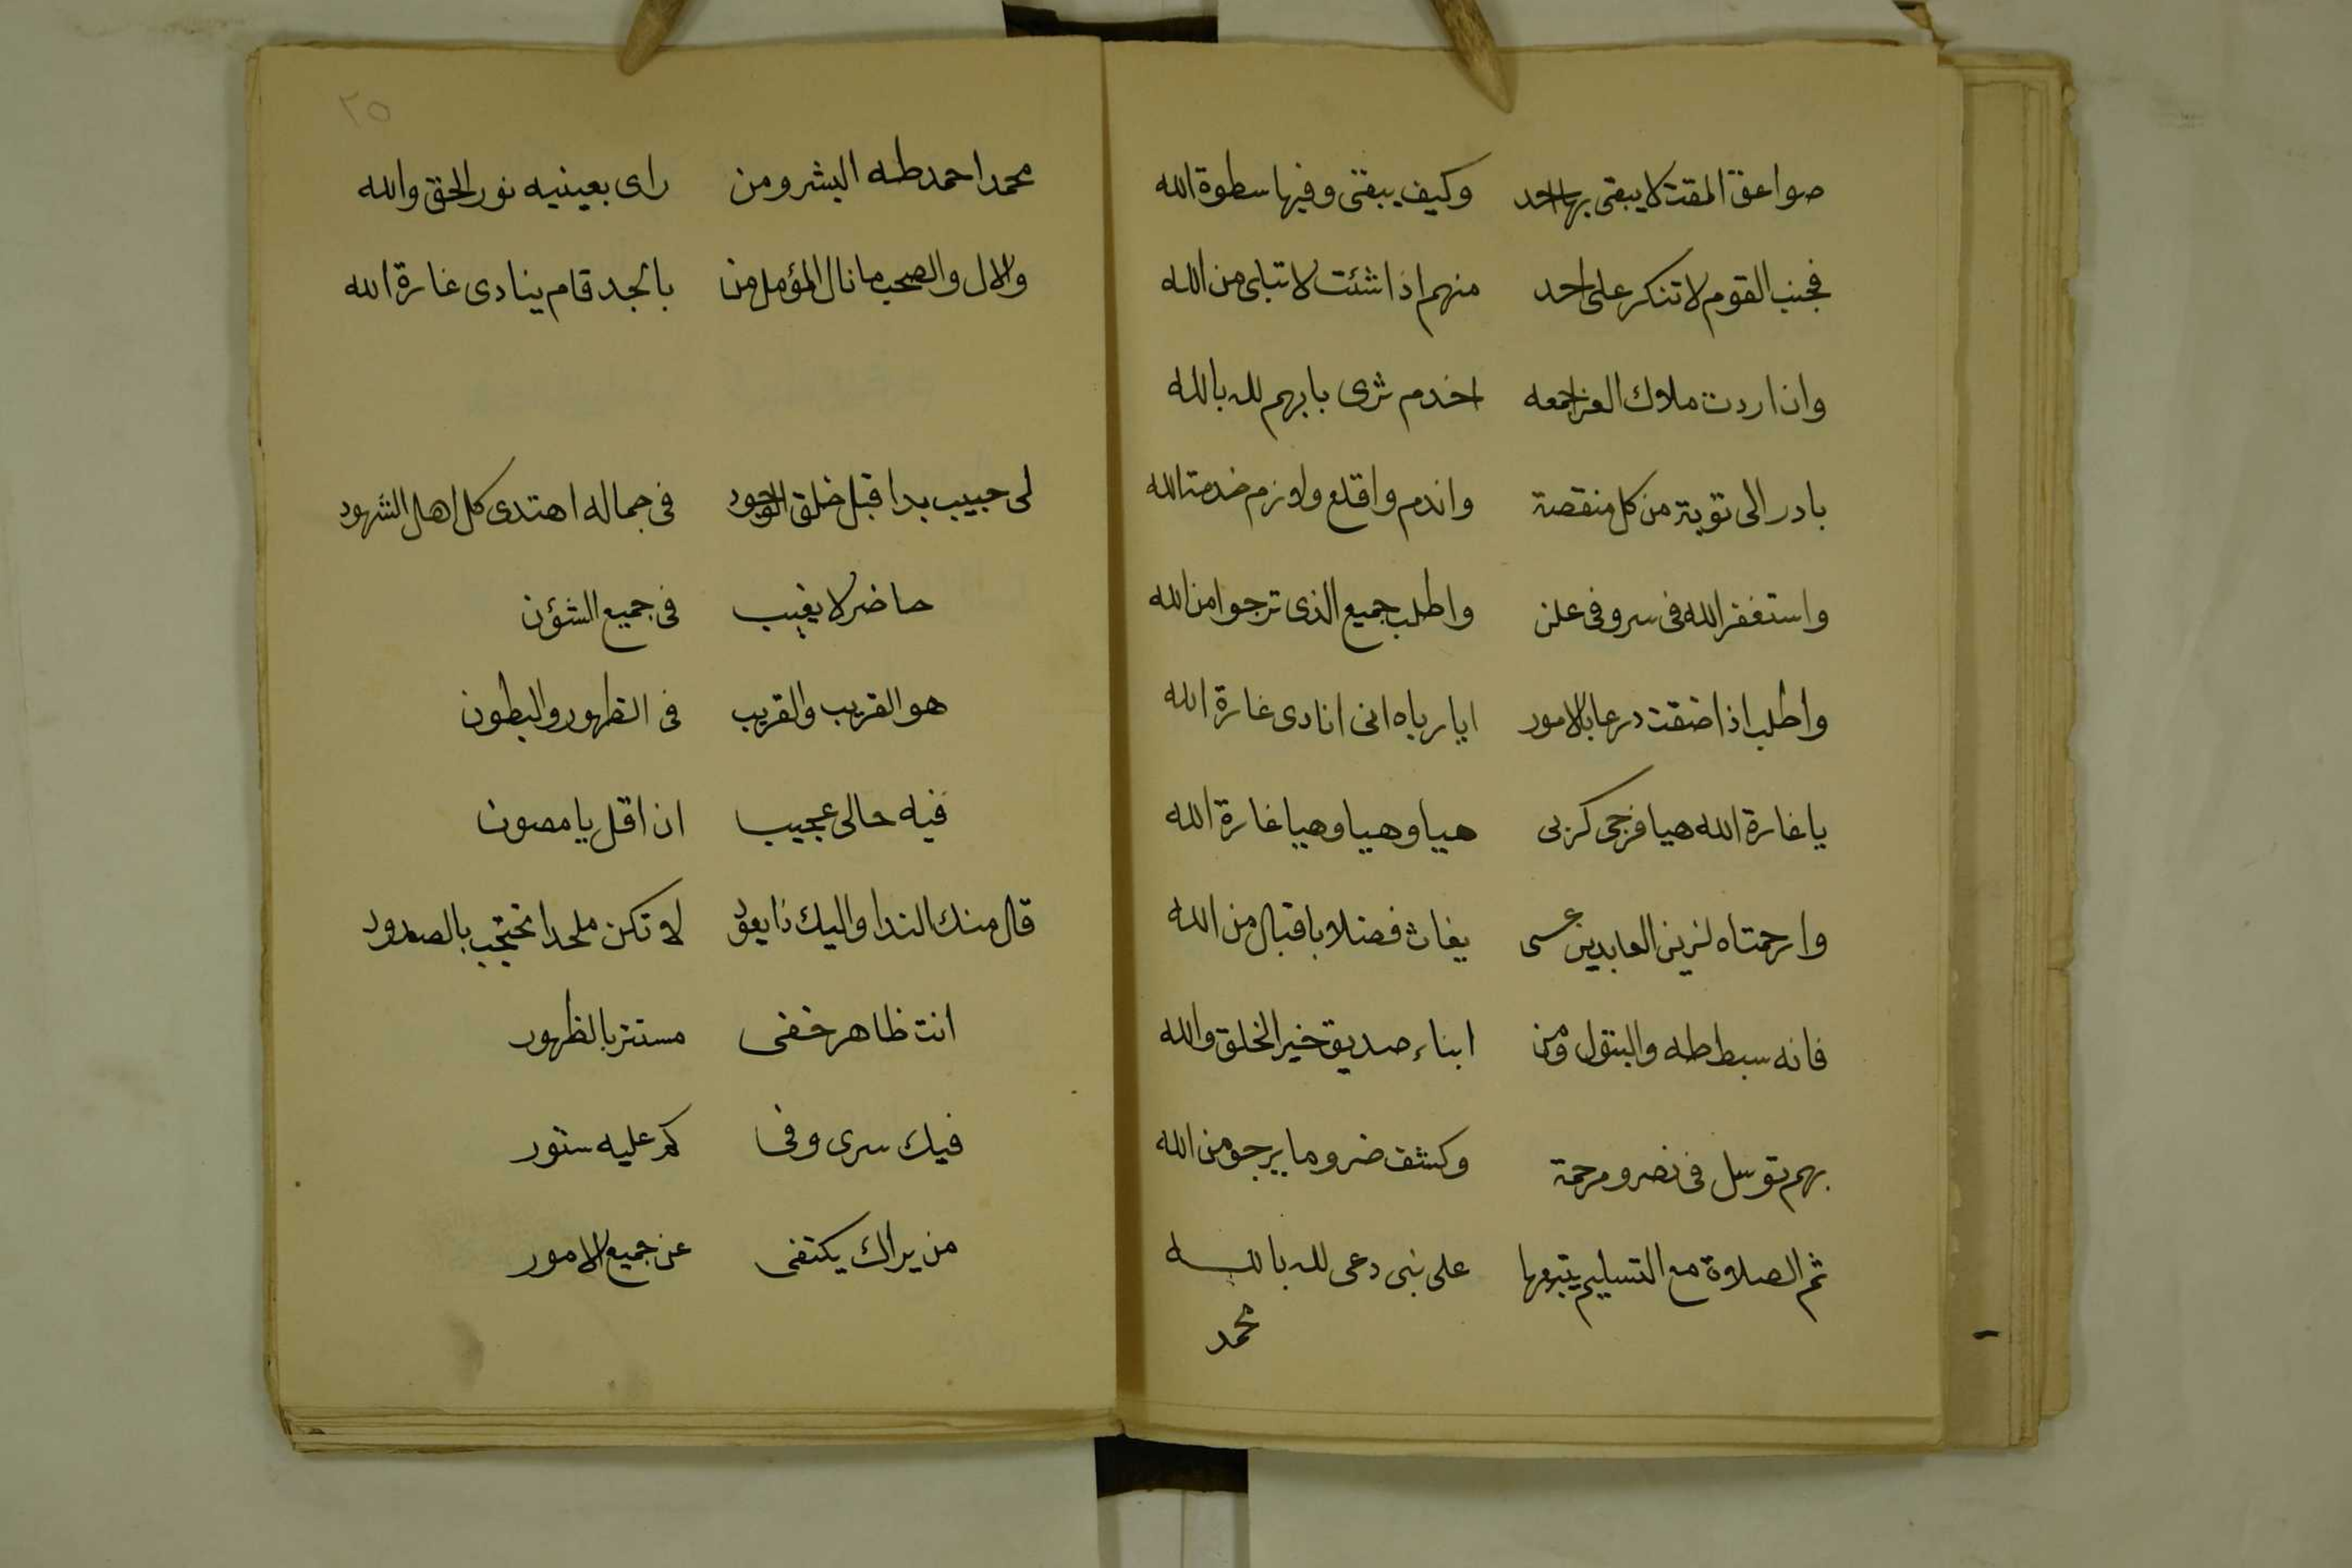 صواعق المقت لا يبقى بها احد وكيف يبقى وفيها سطوة الله
فجنب القوم لا تنكر على احد منهم اذا شئت لا تبلى من الله
وان اردت ملاوك العز اجمعه اخدم ثرى بابهم لله بالله
بادر الى توبة من كل منقصة واندم واقلع ولازم خدمة الله
واستغفر الله فى سر وفى علن واطلب جميع الذى ترجوا من الله
واطلب اذا ضقت درعا بالامور ايا رباه انى انادى غارة الله
يا غارة الله هيا فرجى كربى هيا وهيا وهيا غارة الله
وارحمتاه لزين العابدين عسى يغاث فضلا باقبال من الله
فانه سبط طه والبتول ومن ابناء صديق خير الخلق والله
بهم توسل فى نصر ومرحمة وكشف ضر وما يرجو من الله
ثم الصلاة مع التسليم يتبعها على نبى دعى لله بالله
محمد
٢٥
محمد احمد طه البشر ومن راى بعينيه نور الحق والله
والال والصحب ما نال المؤمل من بالجد قام ينادى غارة الله
لى حبيب بدا قبل خلق الوجود فى جماله اهتدى كل اهل الشهود
حاضر لا يغيب فى جميع الشؤن
هو القريب والقريب فى الظهور والبطون
فيه حالى عجيب ان اقل يا مصون
قال منك الندا واليك ذا يعود لا تكن ملحدا تحتجب بالصدود
انت ظاهر خفى مستتر بالظهور
فيك سرى وفى كم عليه ستور
من يراك يكتفى عن جميع الامور